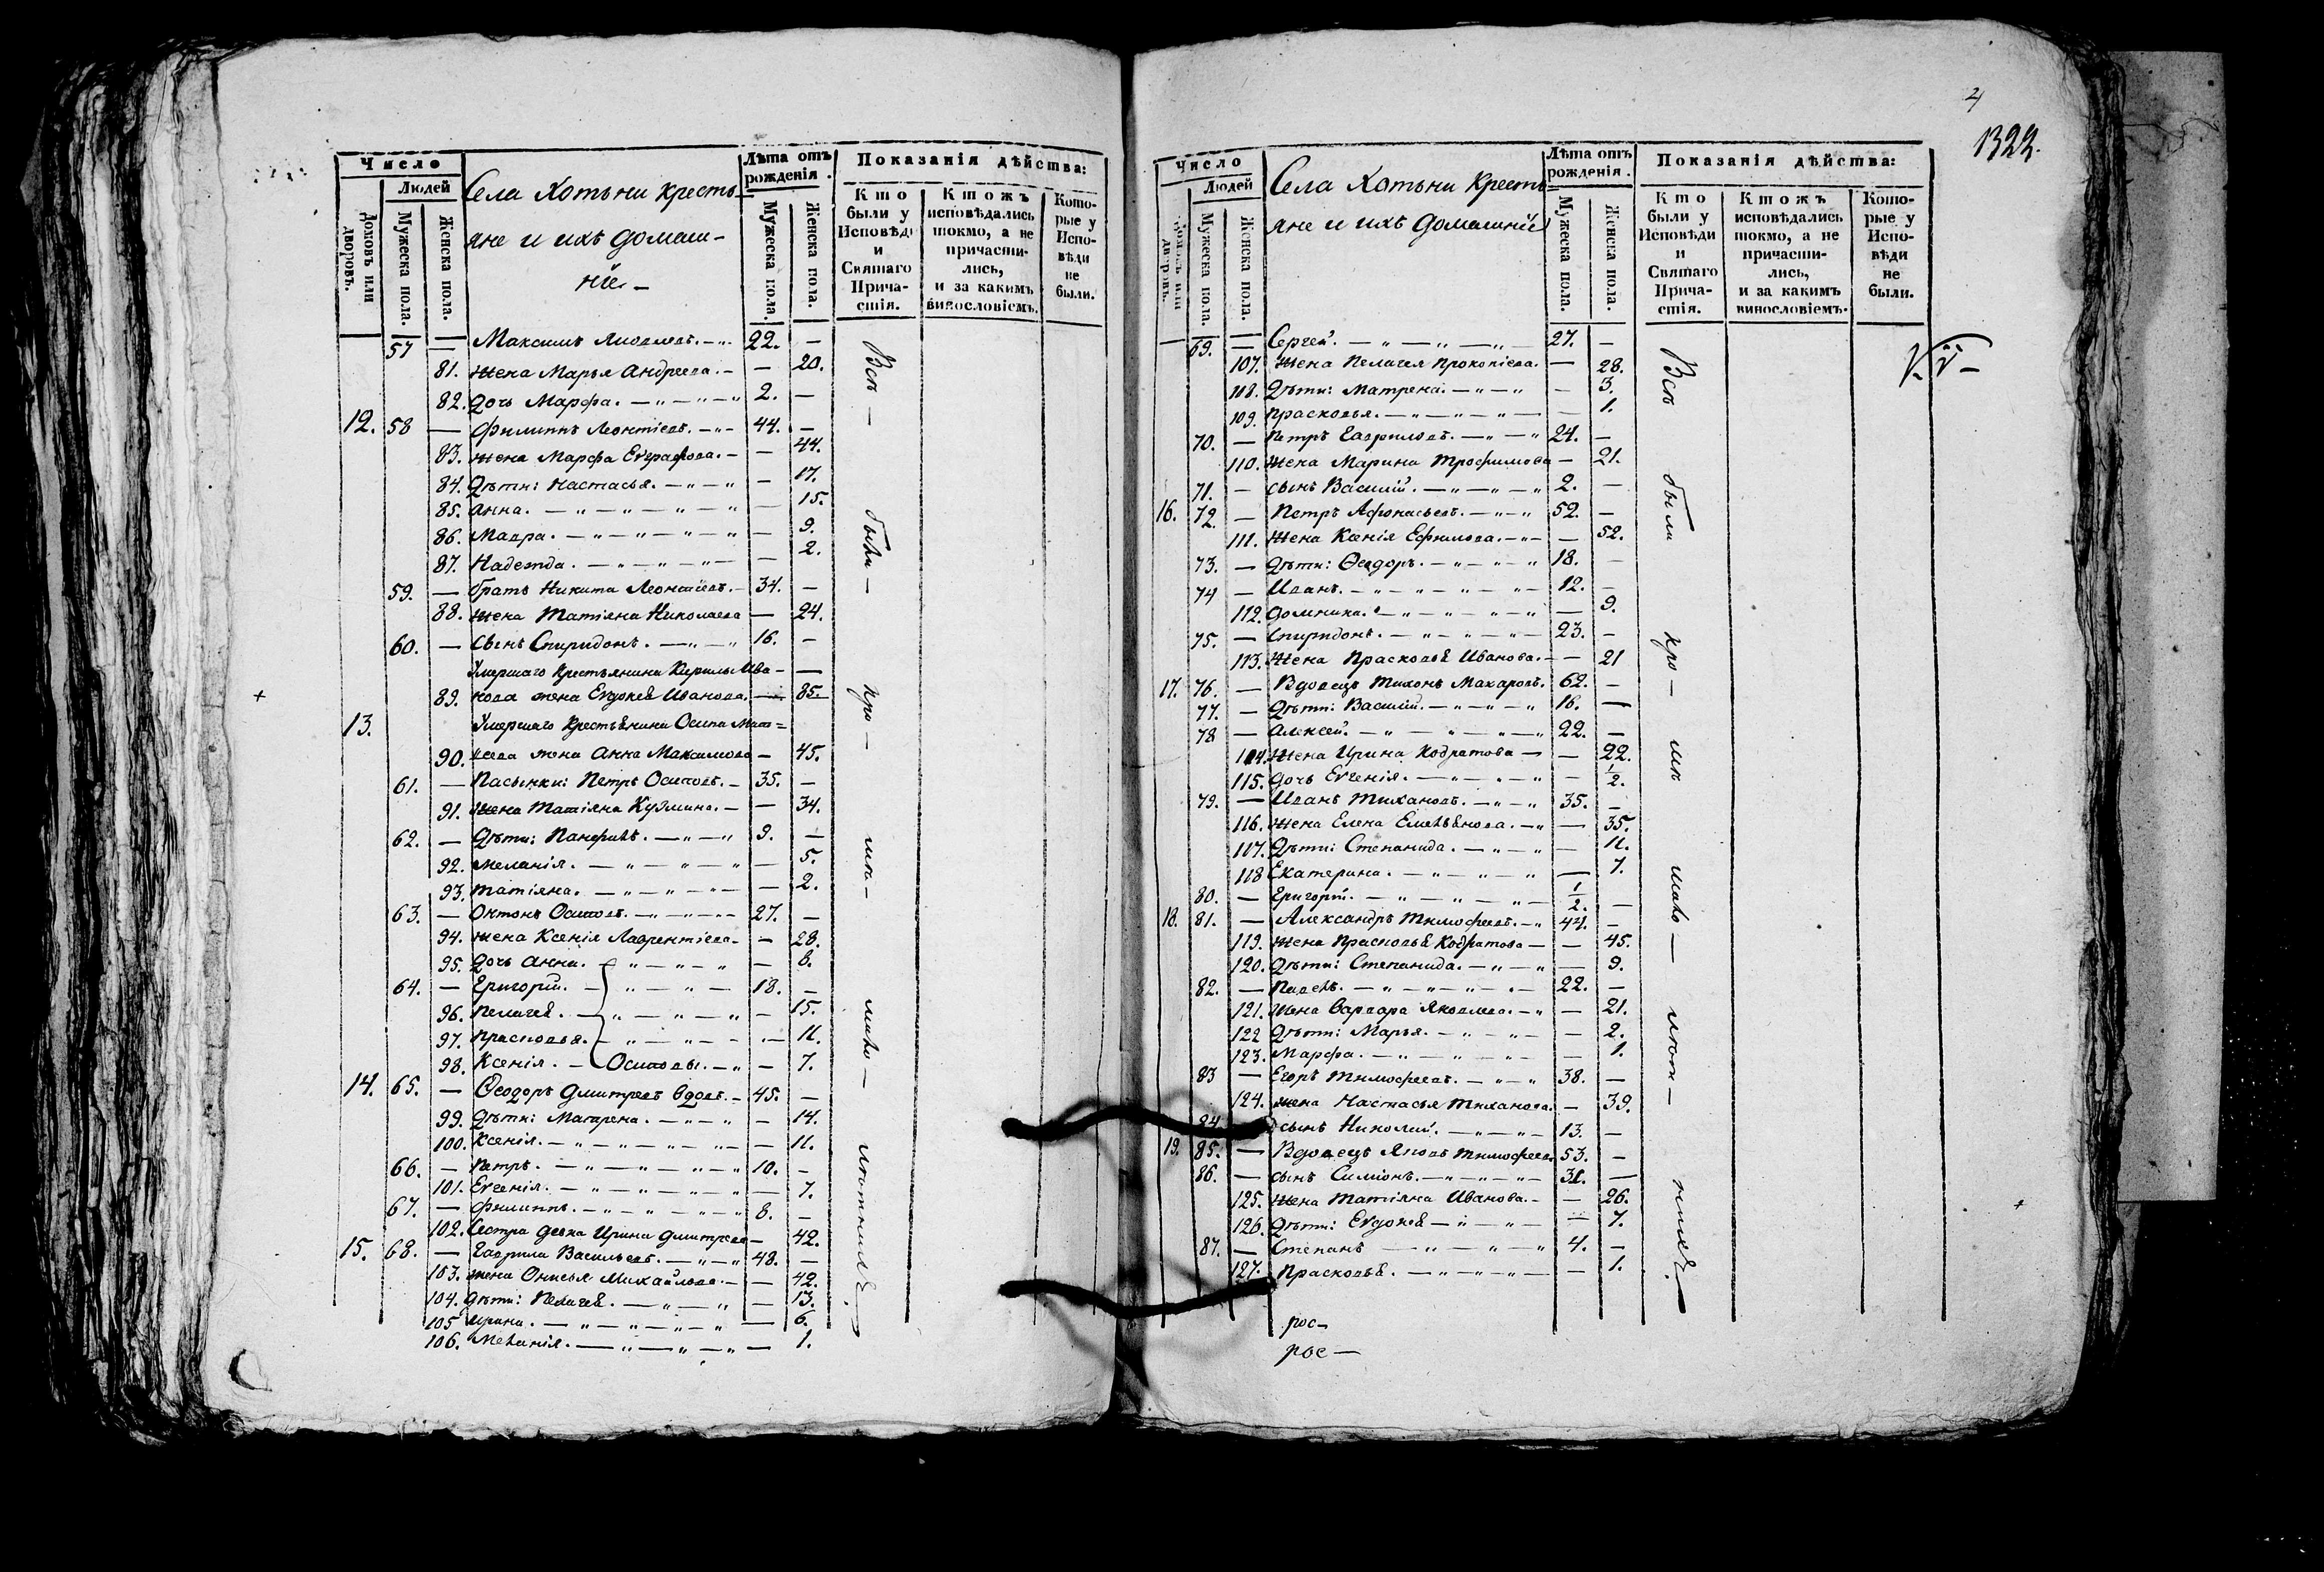 Число
Людей
Домовъ или дворовъ.
Мужеска пола.
Женска пола.
Села Хотьни кресть=
яне и ихъ домаш-
ніе -
Лѣта отъ рожденія.
Мужеска пола
Женска пола.
Показанія дѣйства:
Кто были у Исповѣди и Святаго Причастія.
Ктожъ исповѣдались токмо, а не причастились, и за какимъ винословіемъ.
Которые у Исповѣди не были.
57 — Максимъ Яковлевъ. — 22. —
81. жена Марья Андреева. — — 20.
82. дочь Марфа. — 2. —
12. 58 — Филиппъ Леонтіевъ. — 44. —
83. жена Марфа Евграфова. — — 44.
84. Дѣти: Настасья. — — 17.
85. Анна. — — 15.
86. Мавра. — — 9.
87. Надежда. — — 2.
59. — братъ Никита Леонтіевъ. — 34. —
88. жена Татіяна Николаева — 24.
60. — Сынъ Спиридонъ. — 16. —
Умершаго Крестьянина Кирилы Ива- —
89. нова жена Евдокея Иванова. — 85.
13. Умершаго Крестьянина Осипа Мат=
90. неева жена Анна Максимова — 45.
61. — Пасынки: Петръ Осиповъ. — 35. —
91. жена Татіяна Кузмина. — — 34.
62. — Дѣти: Панфилъ. — 9. —
92. Меланія. — — 5.
93. Татіяна. — — 2.
63. — Онтонъ Осиповъ. — 27. —
94. жена Ксенія Лаврентіева — — 28.
95. дочь Анна. — — 8.
64. — Григорій. — 18. —
96. Пелагея. — — 15.
97. Прасковья. — — 11.
98. Ксенія. — Осиповы. — — 7.
14. 65. — Ѳеодоръ Дмитревъ вдовъ. — 45. —
99. Дѣти: Матрена. — — 14.
100. Ксенія. — — 11.
66. — Петръ. — 10. —
101. Евгенія. — — 7.
67. — Филиппъ. — 8. —
102. Сестра девка Ирина Дмитрева — 42.
15. 68. — Гаврила Васильевъ. — 48. —
103. жена Онисья Михайлова. — — 42.
104. Дѣти: Пелагея. — — 13.
105 Ирина. — — 6.
106. Меланія. — — 1.
Всѣ — были — кро — мѣ — мало — лѣтнихъ.
4
1322.
Число
Людей
Мужеска пола.
Женска пола.
Села Хотьни кресть=
яне и ихъ домашніе
Лѣта отъ рожденія.
Мужеска пола.
Женска пола.
Показанія дѣйства:
Кто были у Исповѣди и Святаго Причастія.
Ктожъ исповѣдались токмо, а не причастились, и за какимъ винословіемъ.
Которые у Исповѣди не были.
69. — Сергей. — 27. —
107. жена Пелагея Прокопіева. — 28.
108. Дѣти: Матрена. — — 3.
109. Прасковья. — — 1.
70. — Петръ Гавриловъ. — 24. —
110. жена Марина Трофимова — 21.
71. — сынъ Василій. — 2. —
16. 72. — Петръ Афонасьевъ. — 52. —
111. жена Ксенія Ефимова. — — 52.
73. — Дѣти: Ѳедоръ. — 18. —
74 — Иванъ. — 12. —
112. Домника. — — 9.
75. — Спиридонъ. — 23. —
113. жена Прасковья Иванова. — — 21
17. 76. — Вдовецъ Тихонъ Макаровъ. 62. —
77. — Дѣти: Василій. — 16. —
78 — Алексей. — 22. —
114. жена Ирина Кодратова — — 22.
115. дочь Евгенія. — — 1/2.
79. — Иванъ Тихановъ. — 35. —
116. жена Елена Емельянова. — — 35.
117. Дѣти: Степанида. — — 11.
118 Екатерина. — — 7.
80. — Григорій. — 1/2. —
18. 81. — Александръ Тимофеевъ. — 44. —
119. жена Прасковья Кодратова — — 45.
120. Дѣти: Степанида. — — 9.
82. — Павелъ. — 22. —
121. жена Варвара Яковлева. — — 21.
122 Дѣти: Марья. — — 2.
123. Марфа. — — 1.
83 — Егоръ Тимофеевъ. — 38. —
124. жена Настасья Тиханова. — 39.
84 сынъ Николай. — 13. —
19. 85. — Вдовецъ Яковъ Тимофеевъ 53. —
86. — сынъ Симіонъ. — 31. —
125. жена Татіяна Иванова. — — 26.
126. Дѣти: Евдокея — — 7.
87. — Степанъ — 4. —
127. Прасковья. — — 1.
Всѣ были кро — мѣ мало — лѣтн — нихъ.
рос—
рос —